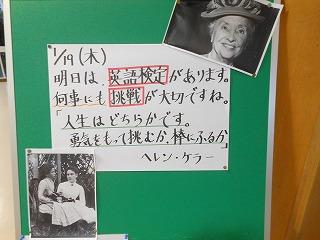 1/19(木)
明日は、英語検定があります。
何事にも挑戦が大切ですね。
「人生はどちらかです。
勇気をもって挑むか、棒にふるか」
ヘレン・ケラー